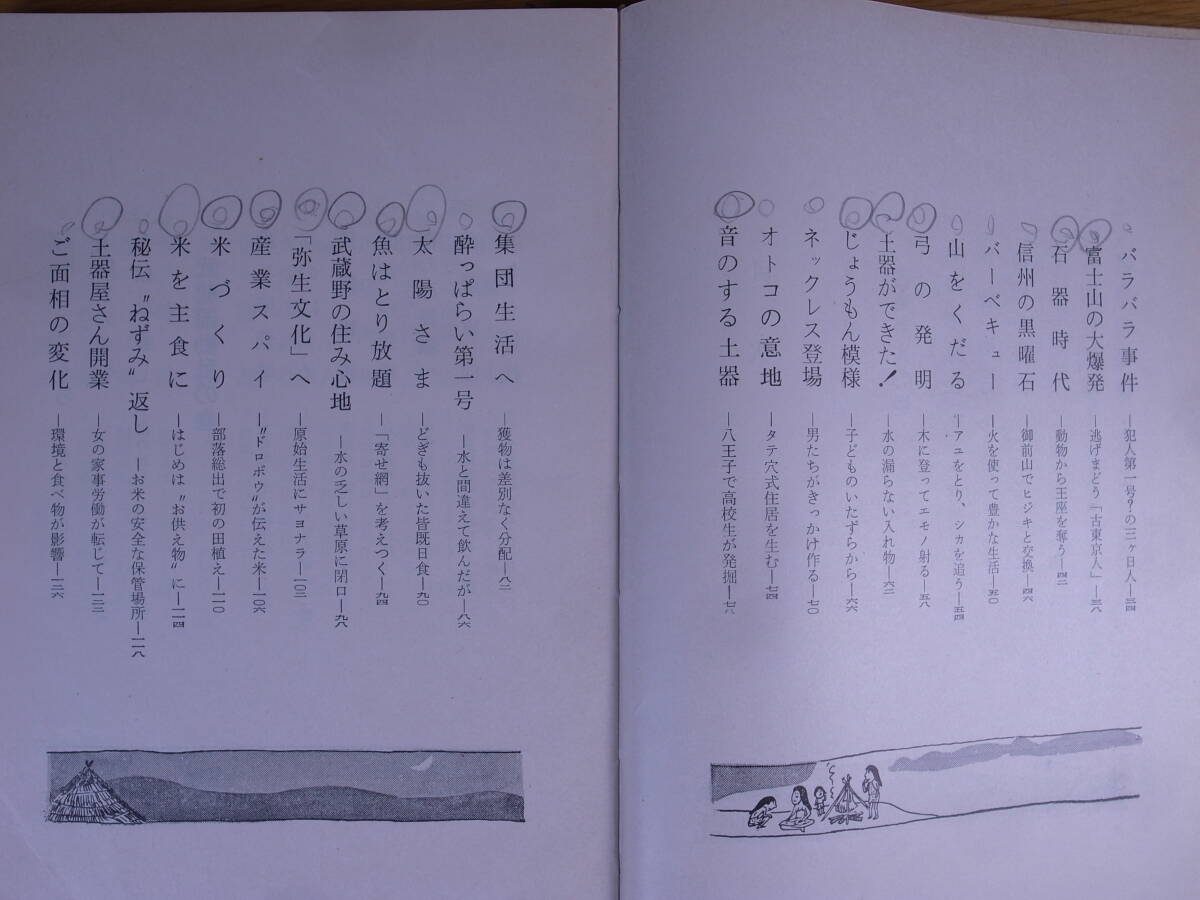 バラバラ事件 ―犯人第一号？の三ヶ日人―三四
富士山の大爆発 ―逃げまどう「古東京人」―三八
石器時代 ―動物から王座を奪う―四二
信州の黒曜石 ―御前山でヒジキと交換―四六
バーベキュー ―火を使って豊かな生活―五〇
山をくだる ―アユをとり、シカを追う―五四
弓の発明 ―木に登ってエモノ射る―五八
土器ができた！ ―水の漏らない入れ物―六二
じょうもん模様 ―子どものいたずらから―六六
ネックレス登場 ―男たちがきっかけ作る―七〇
オトコの意地 ―タテ穴式住居を生む―七四
音のする土器 ―八王子で高校生が発掘―七八
集団生活へ ―獲物は差別なく分配―八二
酔っぱらい第一号 ―水と間違えて飲んだが―八六
太陽さま ―どぎも抜いた皆既日食―九〇
魚はとり放題 ―「寄せ網」を考えつく―九四
武蔵野の住み心地 ―水の乏しい草原に閉口―九八
「弥生文化」へ ―原始生活にサヨナラ―一〇三
産業スパイ ―〝ドロボウ〟が伝えた米―一〇六
米づくり ―部落総出で初の田植え―一一〇
米を主食に ―はじめは〝お供え物〟に―一一四
秘伝〝ねずみ〟返し ―お米の安全な保管場所―一一八
土器屋さん開業 ―女の家事労働が転じて―一三二
ご面相の変化 ―環境と食べ物が影響―一三六